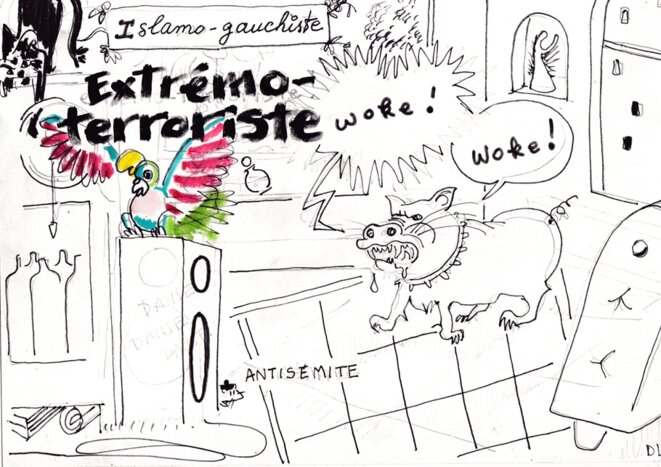 Islamo-gauchiste
Extrémo-
terroriste
woke !
woke !
ANTISÉMITE